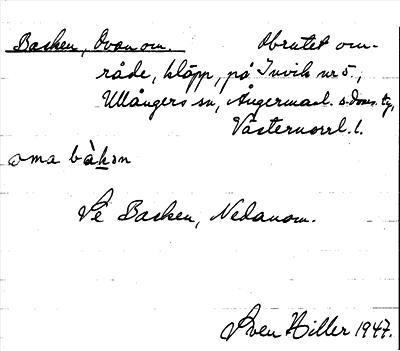 Backen, Ovanom. Obrutet om-
råde, kläpp, på Invik nr 5,
Ullångers sn, Ångermanl. s. doms. tg,
Västernorrl. l.
oma bàkən
Se Backen, Nedanom.
Sven Hiller 1947.